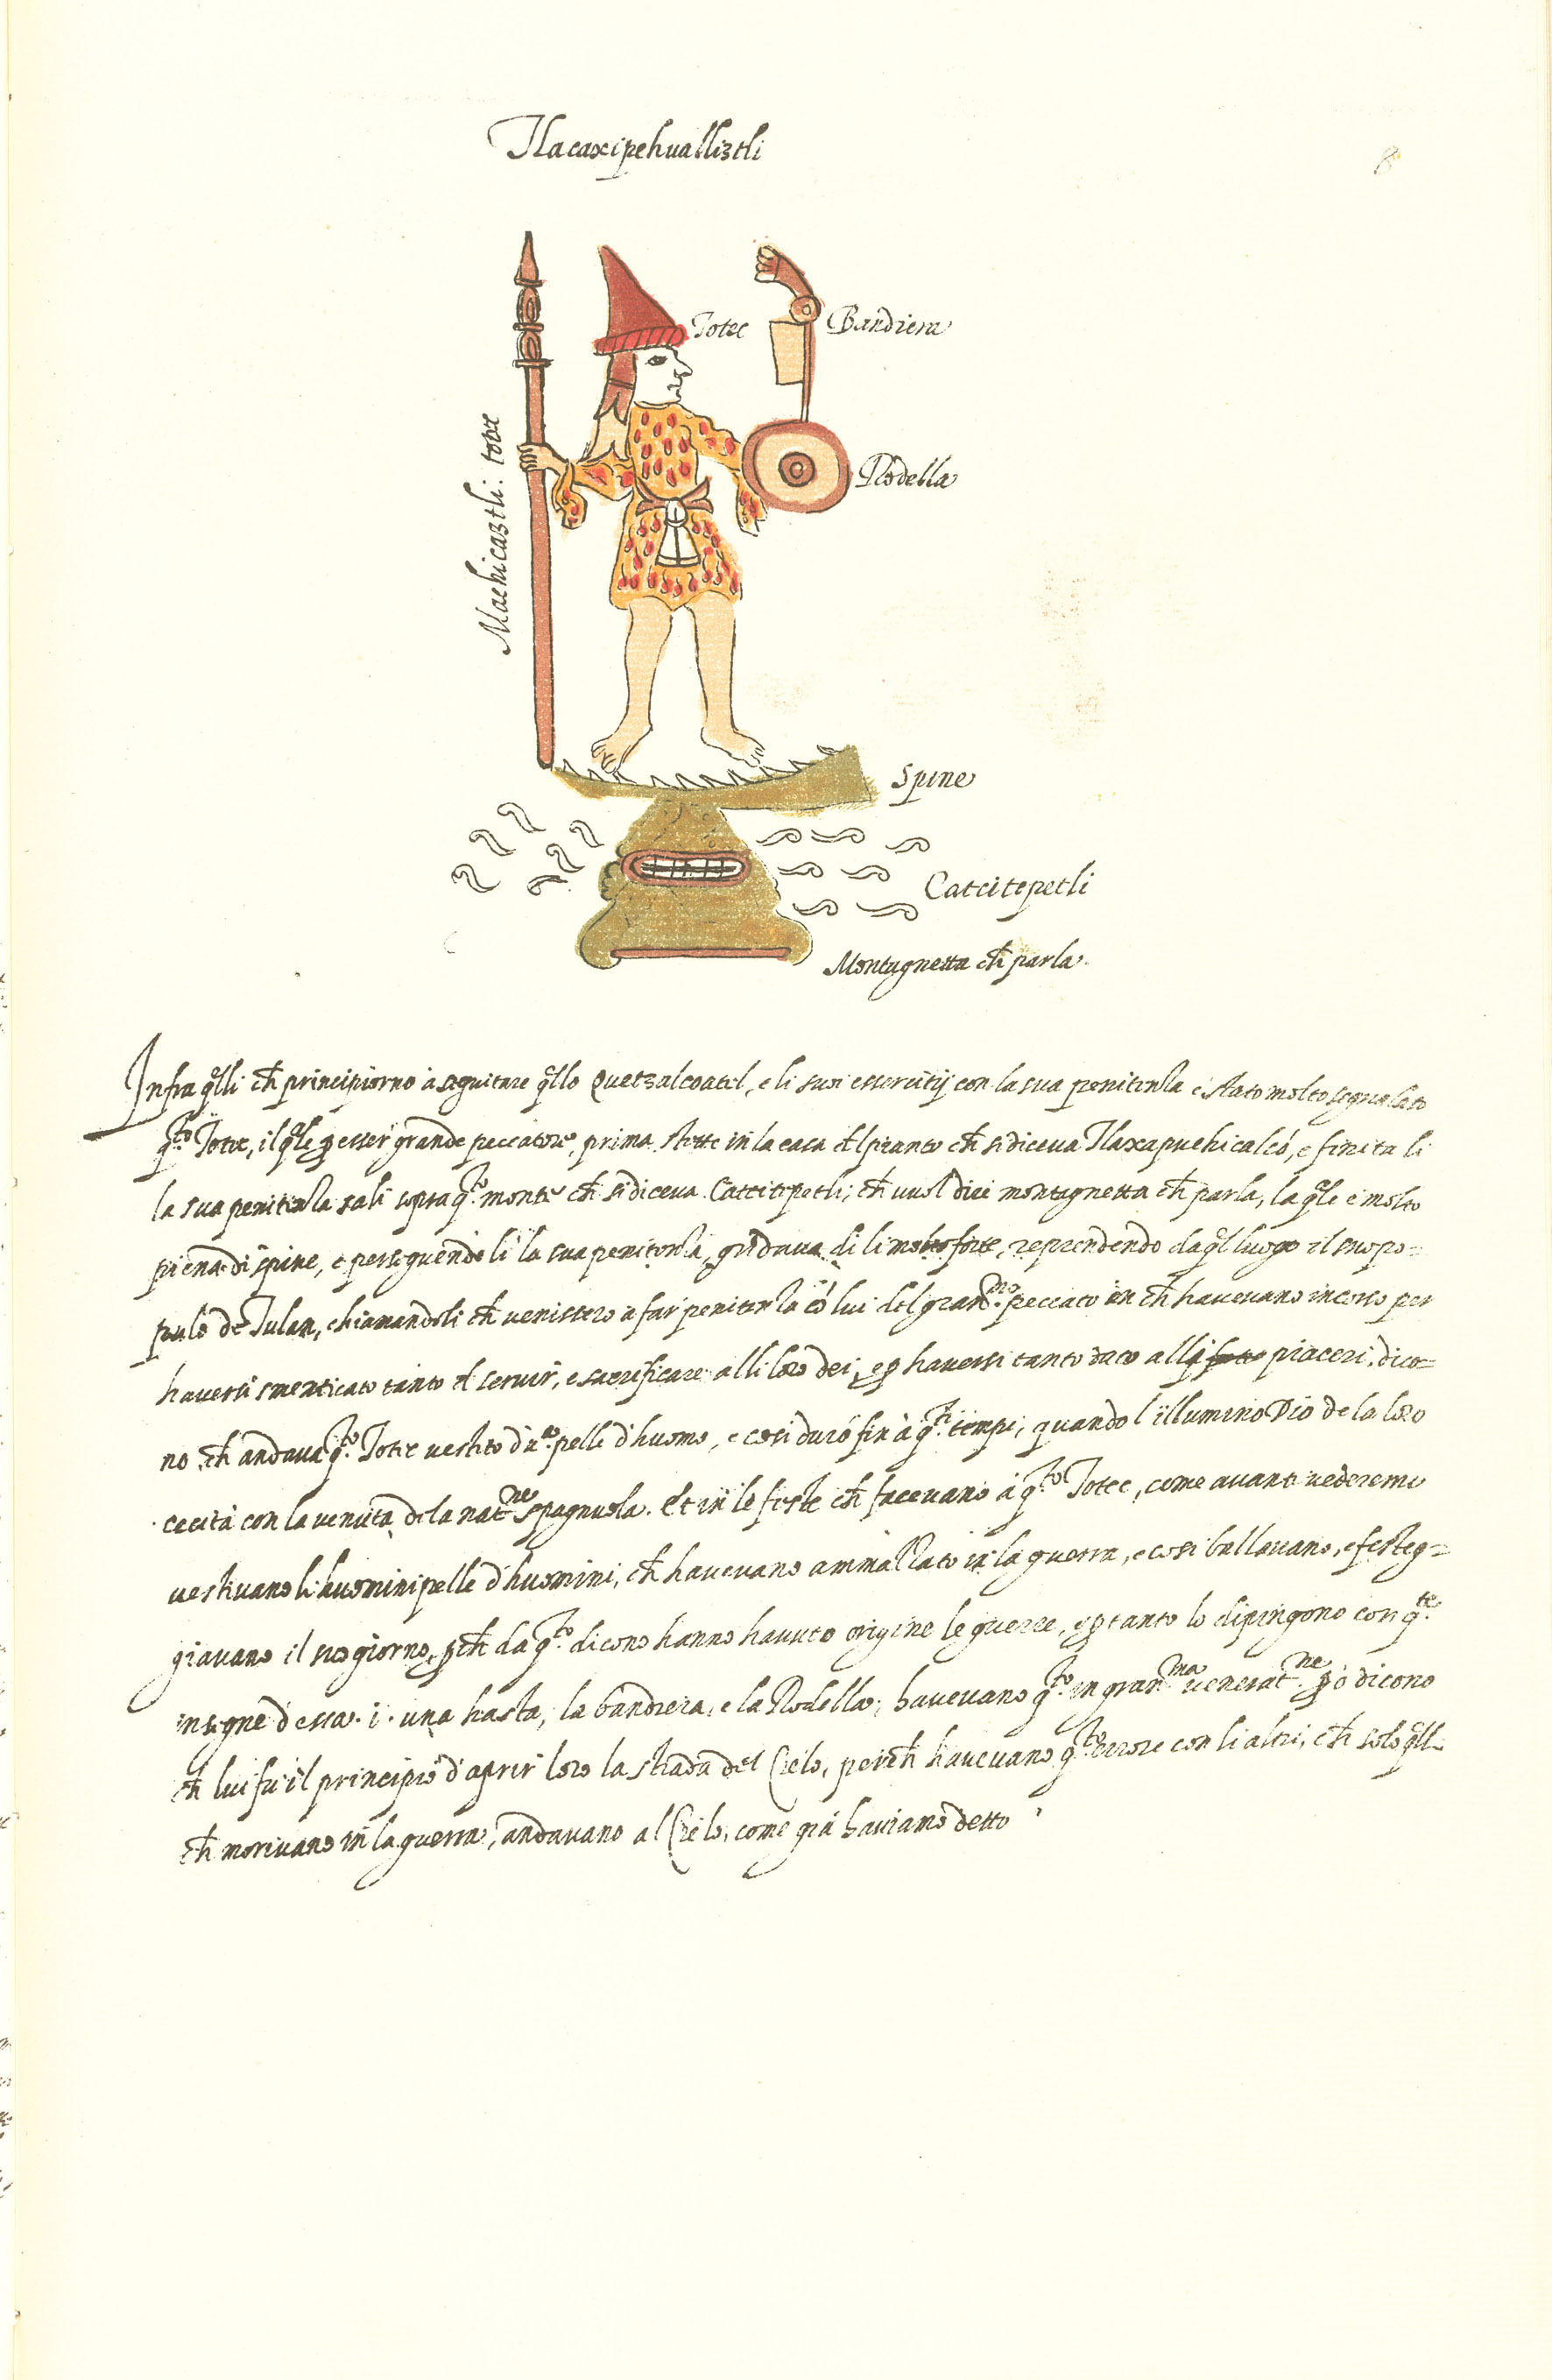 Tlacaxipehualliztli
8
Totec
Bandiera
Machicaztli. totec
Rodella
Spine
Catcitepetli
Montagnetta ch̄ parla.
Infra q̄lli ch̄ principiorno a seguitare q̄llo Quetzalcoatl, e li suoi essercitij con la sua penitenza è stato molto segnalato
q.to Totec, il q̄le ꝑ esser grande peccatore, prima stette in la casa del pianto ch̄ si diceva Tlaxapuchicalcó, e finita li
la sua penitenza sali sopra q.to monte ch̄ si diceva Catcitepetli; ch̄ vuol dire montagnetta ch̄ parla, la q̄le è molto
piena di spine, e perseguendo li la sua penitenza, gridava di li molto forte, reprendendo da q̄l luogo il suo po=
pulo de Tulan, chiamandoli ch̄ venissero a far penitenza cō lui del gran.mo peccato in ch̄ havevano incorso per
haversi smenticato tanto del servir, e sacrificare alli loro dei, e ꝑ haversi tanto dato alli piaceri. dico=
no ch̄ andava q.to Totec vestito d'u.na pelle d'huomo, e cosi duró fin à q.ti tempi, quando l'illuminò Dio de la loro
cecità con la venuta de la nat.ne spagnuola. Et in le feste ch̄ facevano à q.to Totec, come avanti vederemo
vestivano li huomini pelle d'huomini, ch̄ havevano ammazzato in la guerra, e cosi ballavano, e festeg=
giavano il suo giorno, ꝑch̄ da q.to dicono hanno havuto origine le guerre, e ꝑ tanto lo dipingono con q.te
insegne d'essa. i. una hasta, la bandiera, e la Rodella; havevano q.to in gran.ma venerat.ne ꝑò dicono
ch̄ lui fù il principio d'aprir loro la strada del Cielo, perch̄ havevano q.to errore con li altri, ch̄ solo q̄lli
ch̄ morivano in la guerra, andavano al Cielo, come già haviamo detto